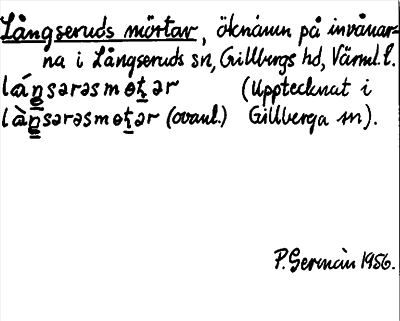 Långseruds mörtar, öknamn på invånar-
na i Långseruds sn, Gillbergs hd, Värml. l.
láŋsərəsmɵt̠ər (Upptecknat i
làŋsərəsmɵt̠ər (ovanl.) Gillberga sn).
P. Germain 1956.